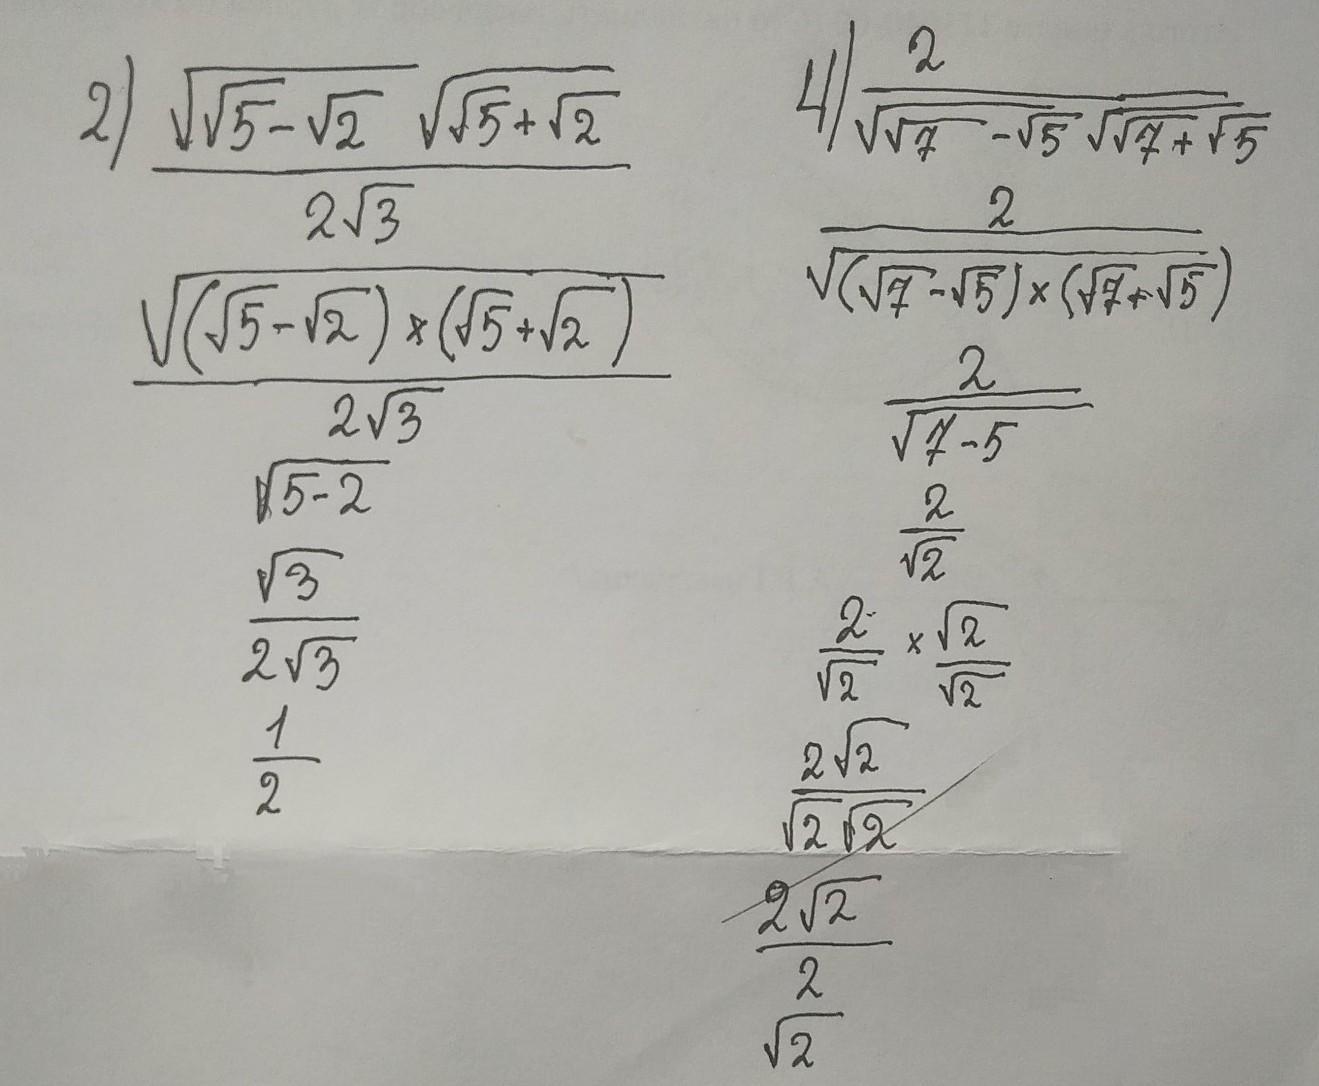 2) √(√5-√2) √(√5+√2)
2√3
√((√5-√2)×(√5+√2))
2√3
√(5-2)
√3
2√3
1
2
4) 2
√(√7-√5) √(√7+√5)
2
√((√7-√5)×(√7+√5))
2
√(7-5)
2
√2
2 × √2
√2 √2
2√2
√2√2
2√2
2
√2